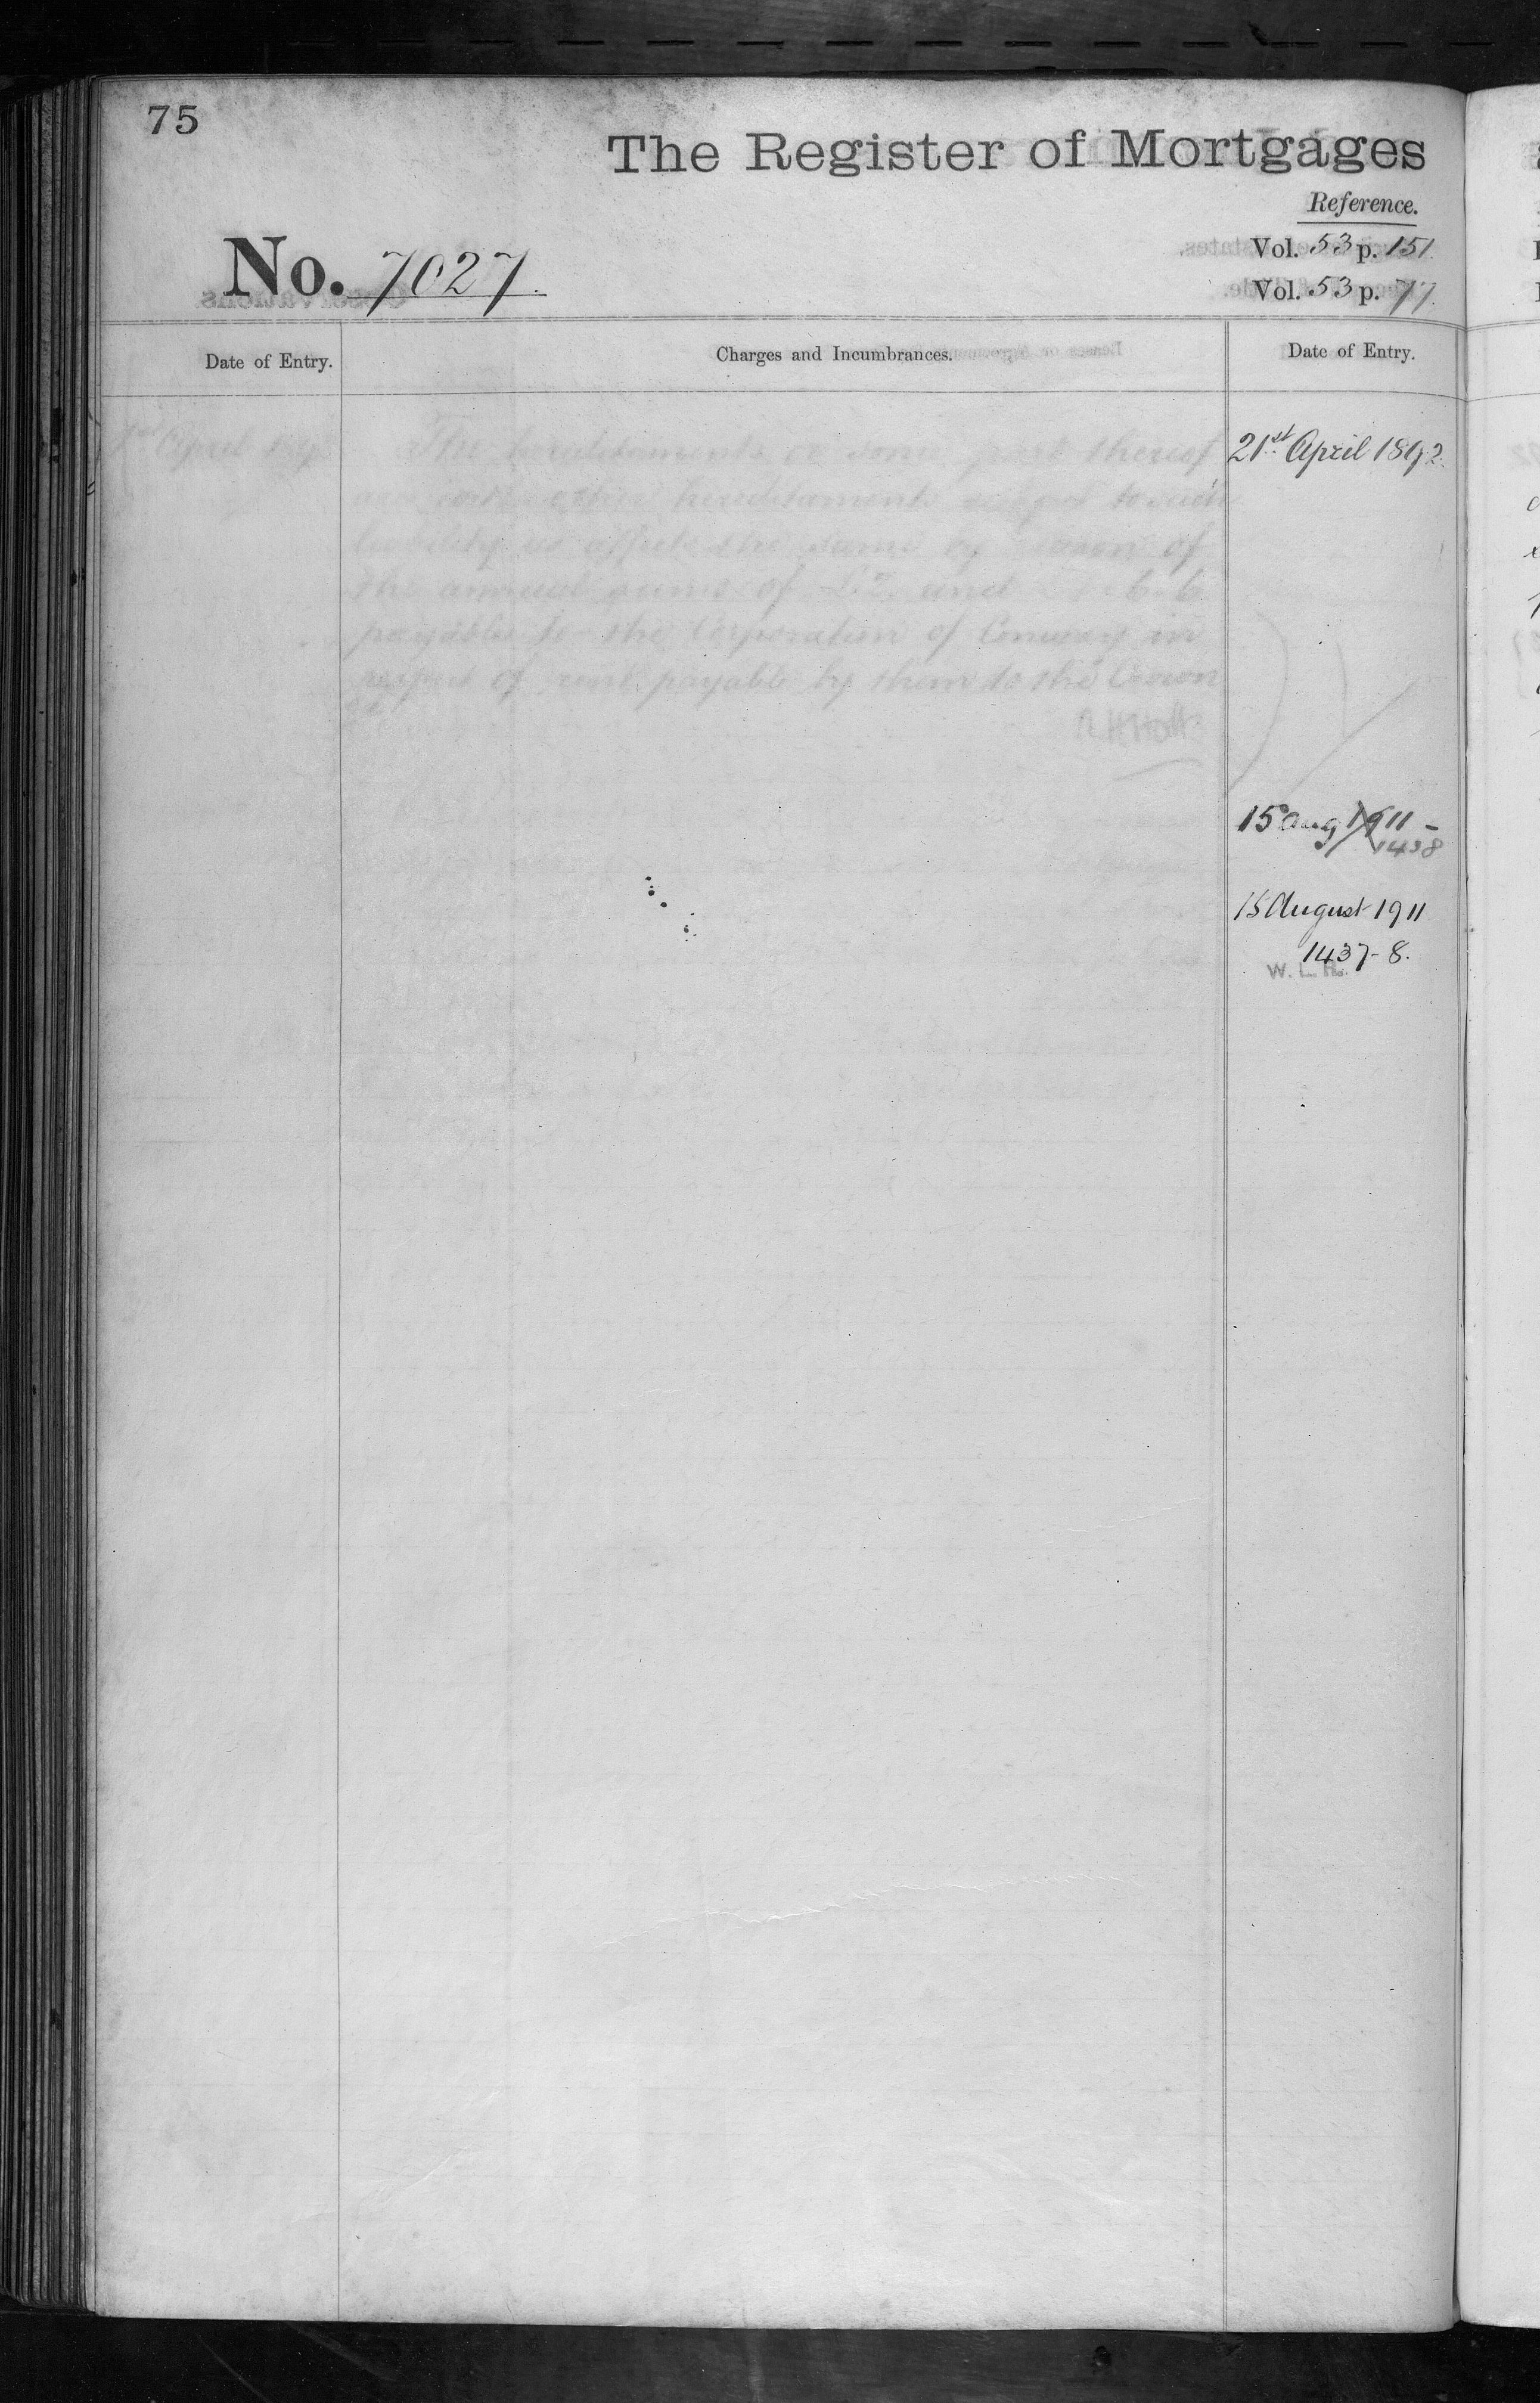 75
The Register of Mortgages
Reference.
No. 7027.
Vol. 53 p. 151.
Vol. 53 p. 77.
Date of Entry.
Charges and Incumbrances.
Date of Entry.
April 189
The hereditaments or some part thereof
other hereditaments subject to such
liability as affects the same by reason of
the annual sums of £2 and 6.6
payable to the Corporation of Conway in
respect of rent payable by them to the Crown
R H Holt
21st April 1892.
15 Aug 1911 -
1438
15 August 1911
1437-8.
W. L. R.